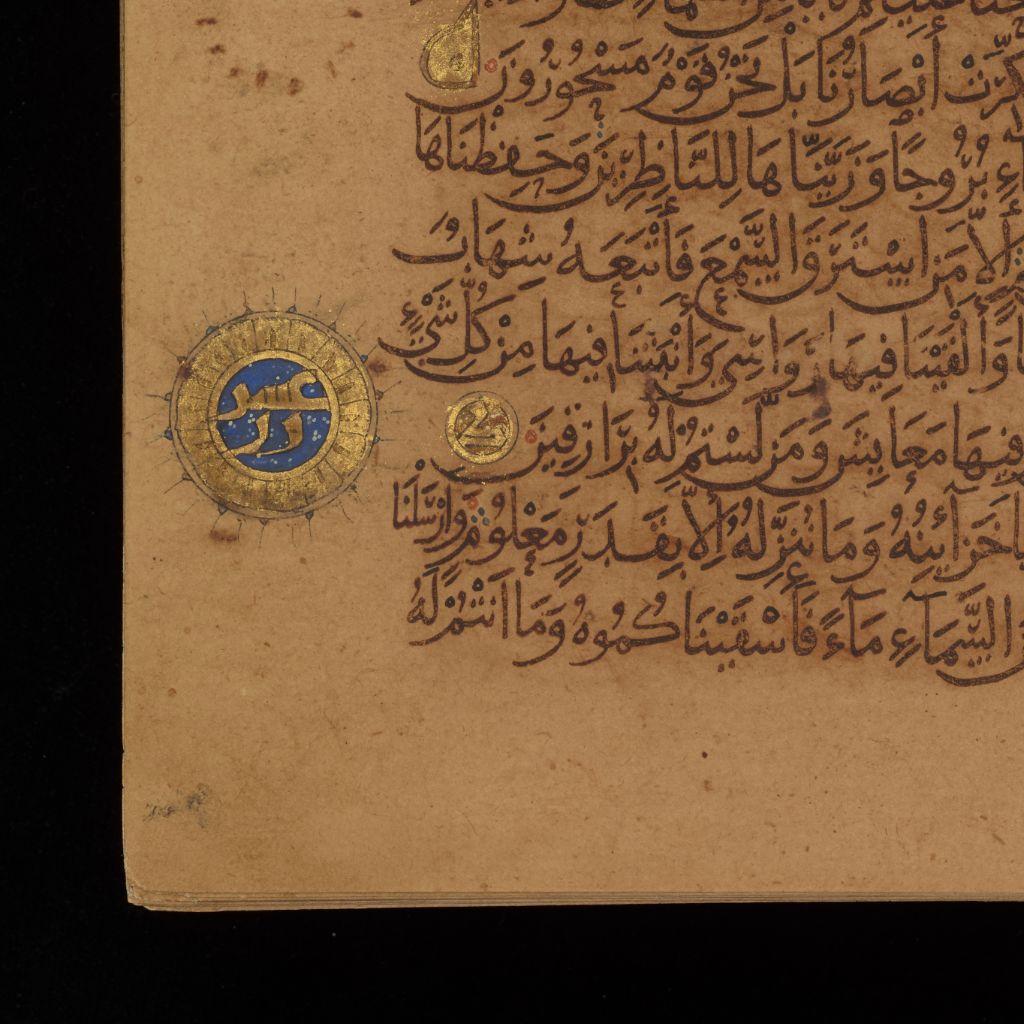 كِّرَتْ أَبْصَارُنَا بَلْ نَحْنُ قَوْمٌ مَسْحُورُونَ
بُرُوجًا وَزَيَّنَّاهَا لِلنَّاظِرِينَ وَحَفِظْنَاهَا
إِلَّا مَنِ اسْتَرَقَ السَّمْعَ فَأَتْبَعَهُ شِهَابٌ
وَأَلْقَيْنَا فِيهَا رَوَاسِيَ وَأَنْبَتْنَا فِيهَا مِنْ كُلِّ شَيْءٍ
فِيهَا مَعَايِشَ وَمَنْ لَسْتُمْ لَهُ بِرَازِقِينَ
خَزَآئِنُهُ وَمَا نُنَزِّلُهُ إِلَّا بِقَدَرٍ مَعْلُومٍ وَأَرْسَلْنَا
السَّمَآءِ مَآءً فَأَسْقَيْنَاكُمُوهُ وَمَا أَنْتُمْ لَهُ
عشر